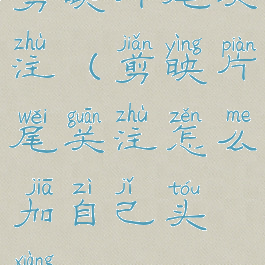 剪映片尾关
zhù jiǎn yìng piàn
注(剪映片
wěi guān zhù zěn me
尾关注怎么
jiā zì jǐ tóu
加自己头
xiàng